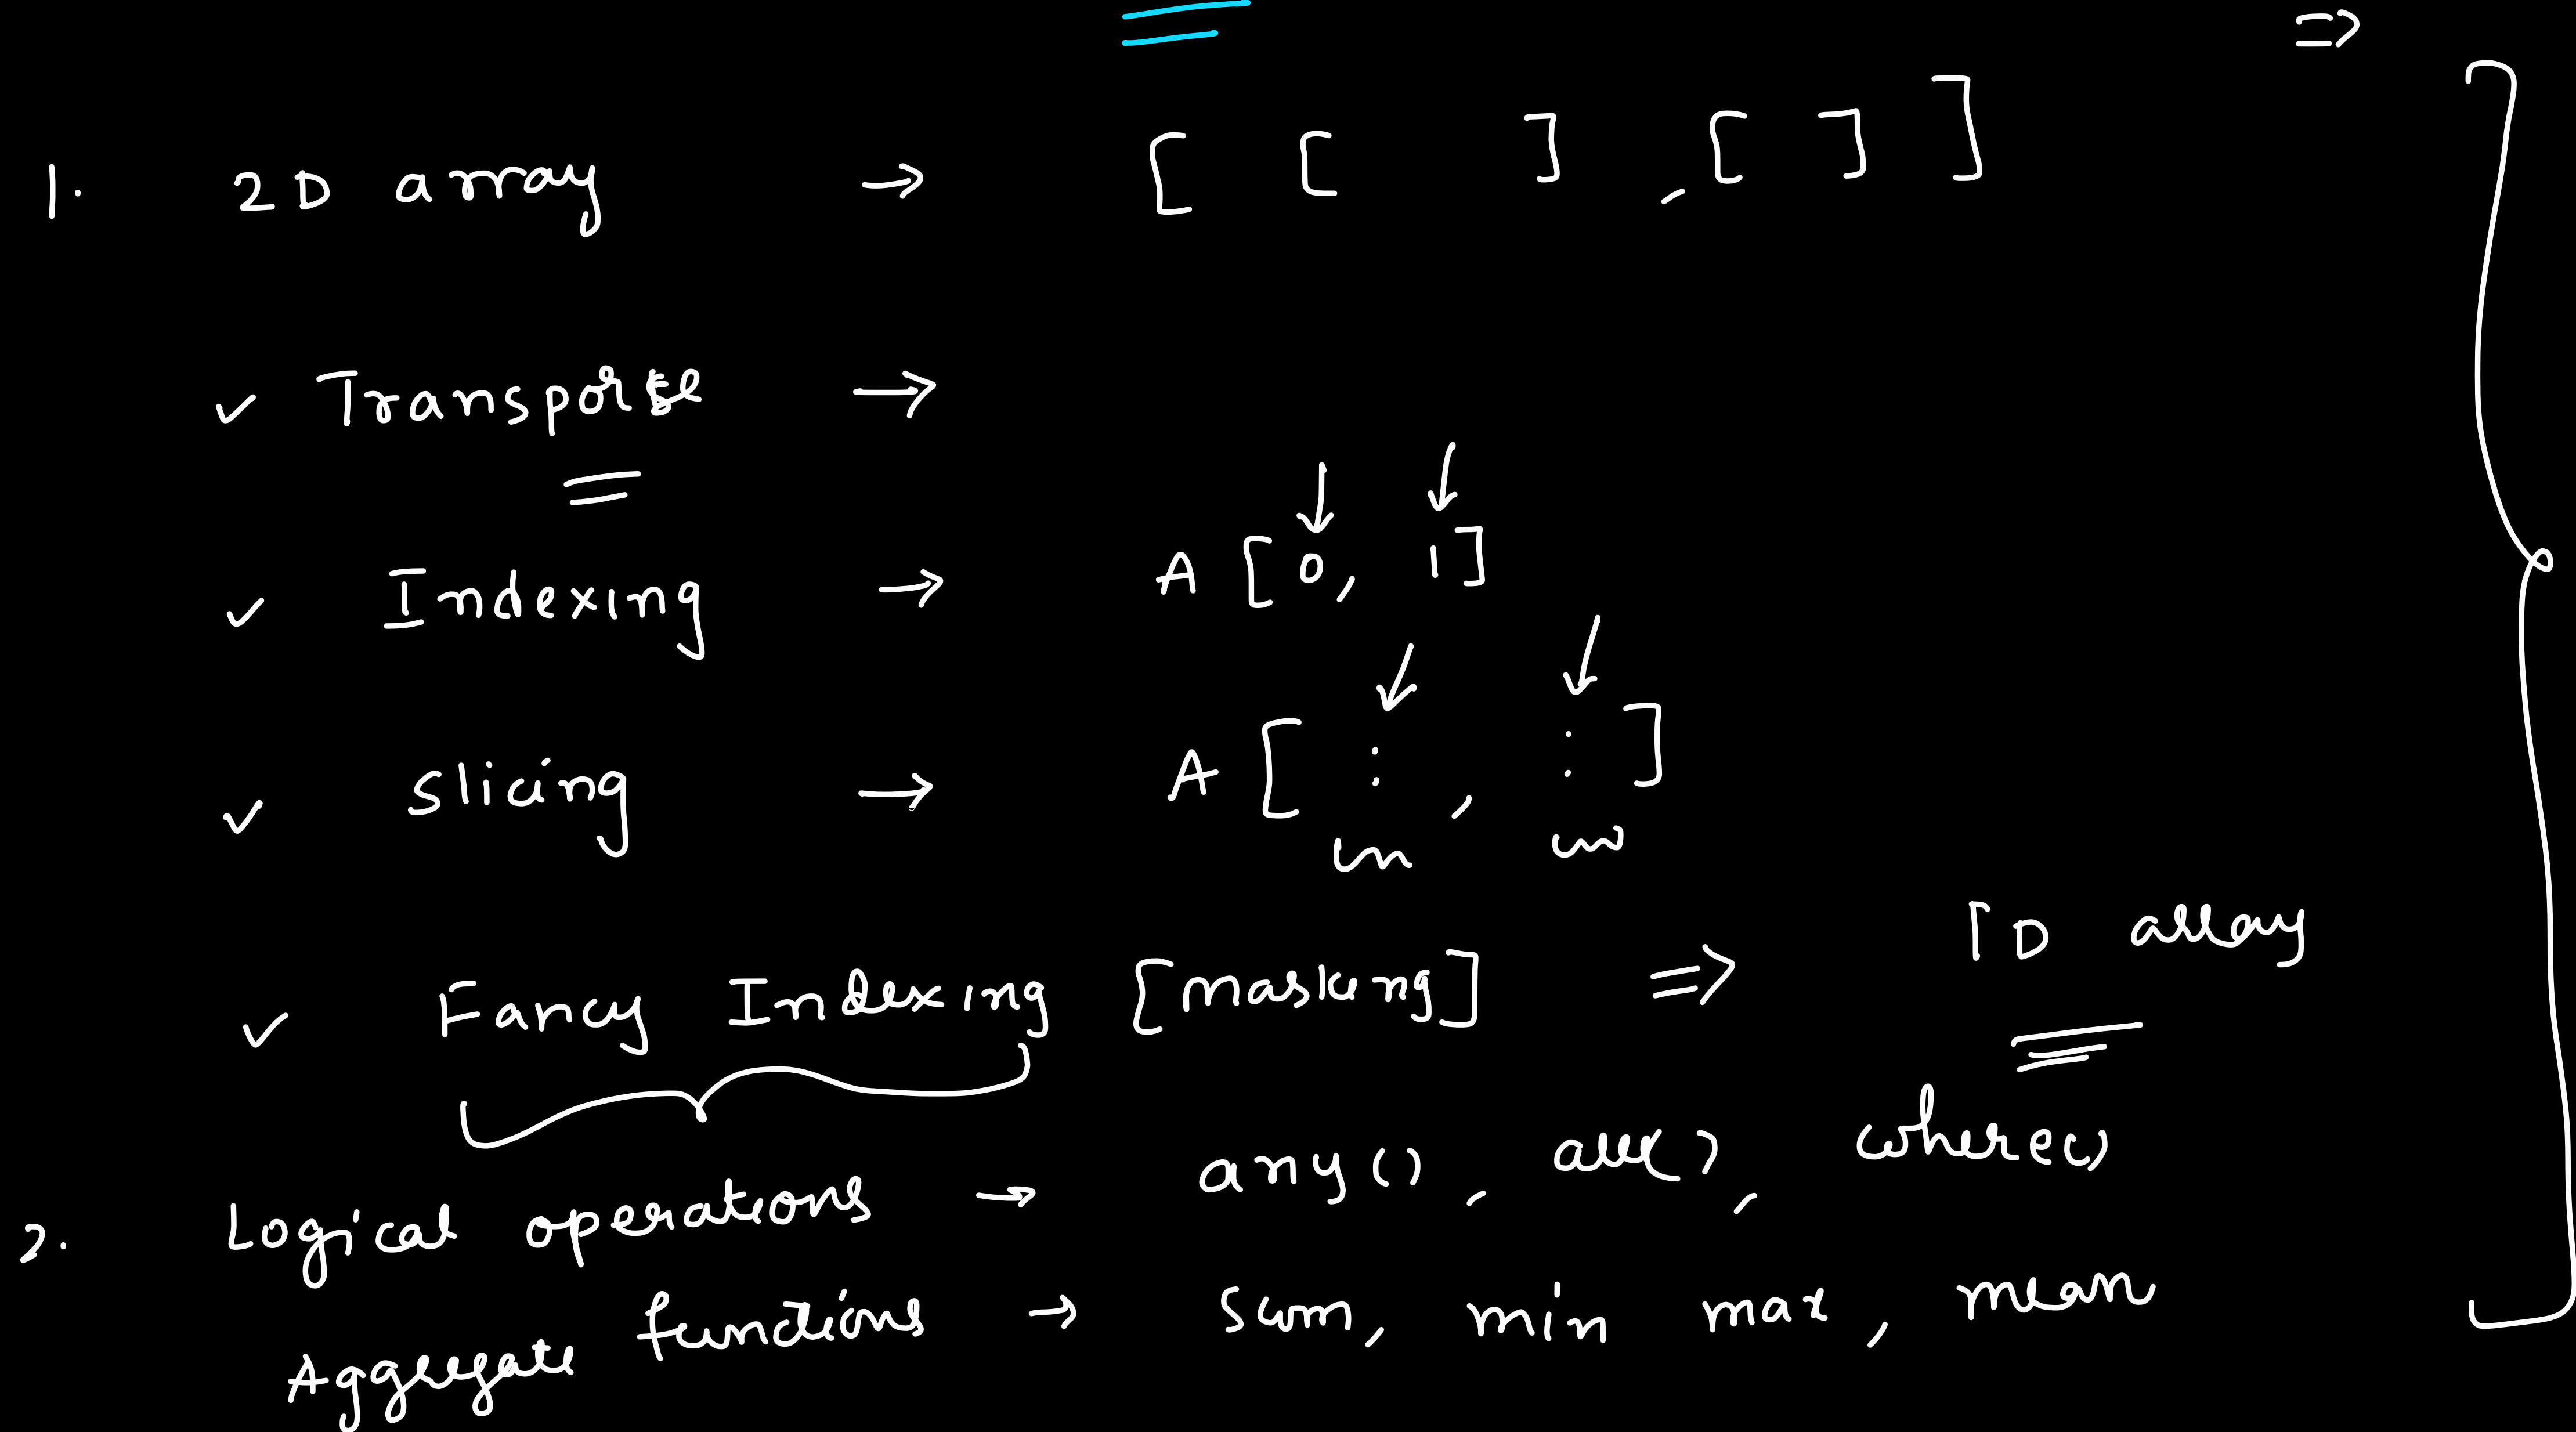 ⇒
1. 2D array → [ [ ] , [ ] ]
✓ Transpose →
✓ Indexing → A [ 0, 1 ]
✓ Slicing → A [ : , : ]
✓ Fancy Indexing [masking] ⇒ 1D array
2. Logical operations → any(), all(), where()
Aggregate functions → sum, min max, mean